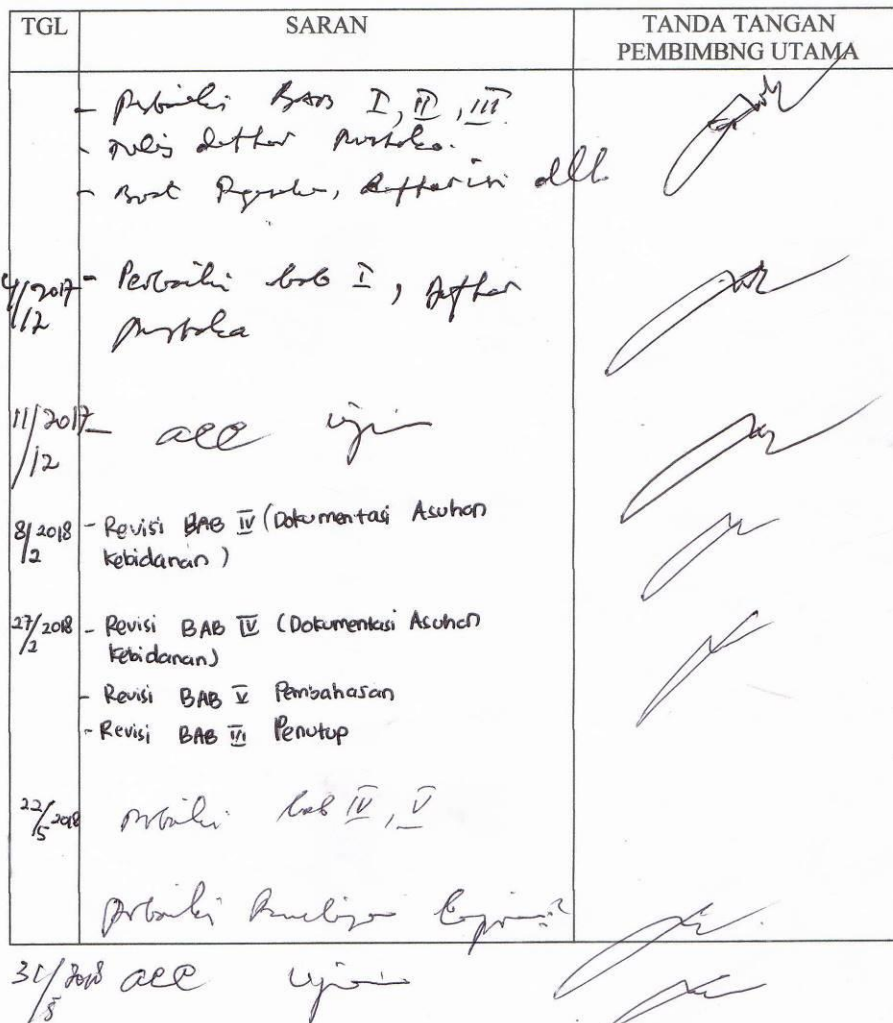 TGL SARAN TANDA TANGAN
PEMBIMBNG UTAMA
- Perbaiki BAB I, II, III
- Tulis daftar pustaka.
- Buat Pengantar, daftar isi dll
4/2017 - Perbaiki bab I, daftar
/12 pustaka
11/2017 - acc ujian
/12
8/2018 - Revisi BAB IV (Dokumentasi Asuhan
/2 kebidanan)
27/2018 - Revisi BAB IV (Dokumentasi Asuhan
/2 kebidanan)
- Revisi BAB V Pembahasan
- Revisi BAB VI Penutup
22/2018 perbaiki bab IV, V
/5
perbaiki
31/2018 acc ujian
/5